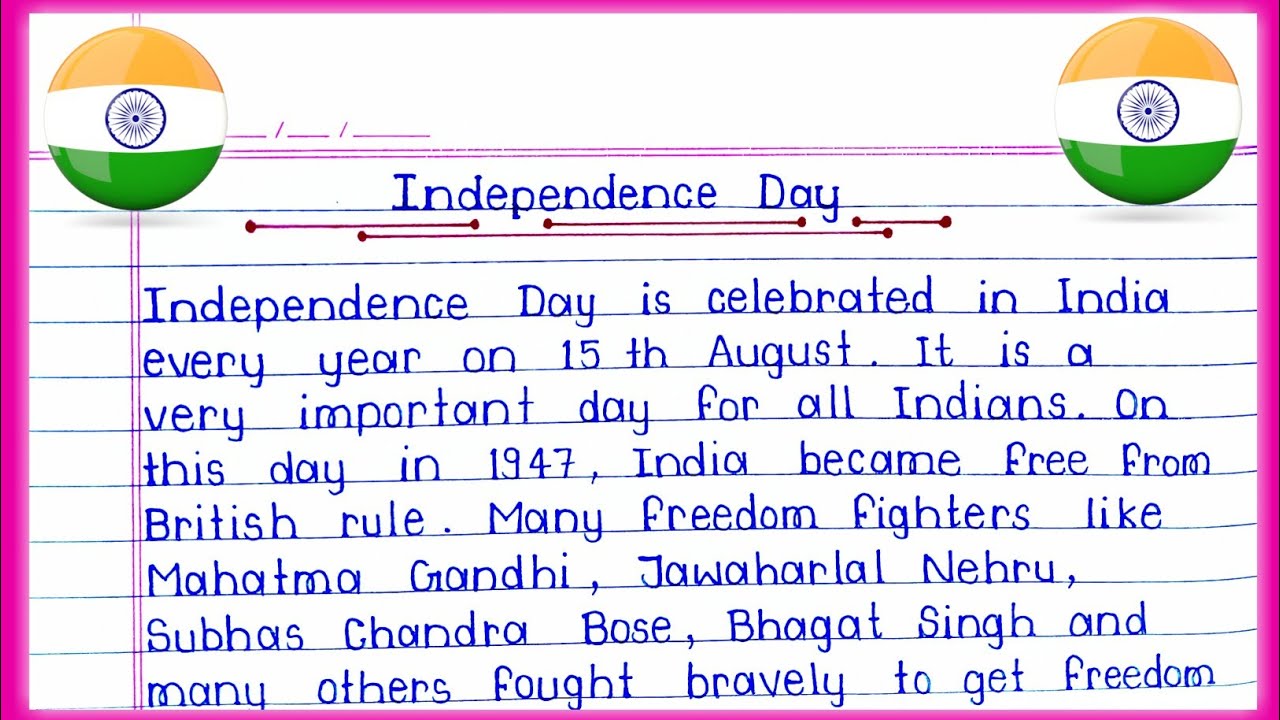 Independence Day
Independence Day is celebrated in India
every year on 15 th August. It is a
very important day for all Indians. On
this day in 1947, India became free from
British rule. Many freedom fighters like
Mahatma Gandhi, Jawaharlal Nehru,
Subhas Chandra Bose, Bhagat Singh and
many others fought bravely to get freedom